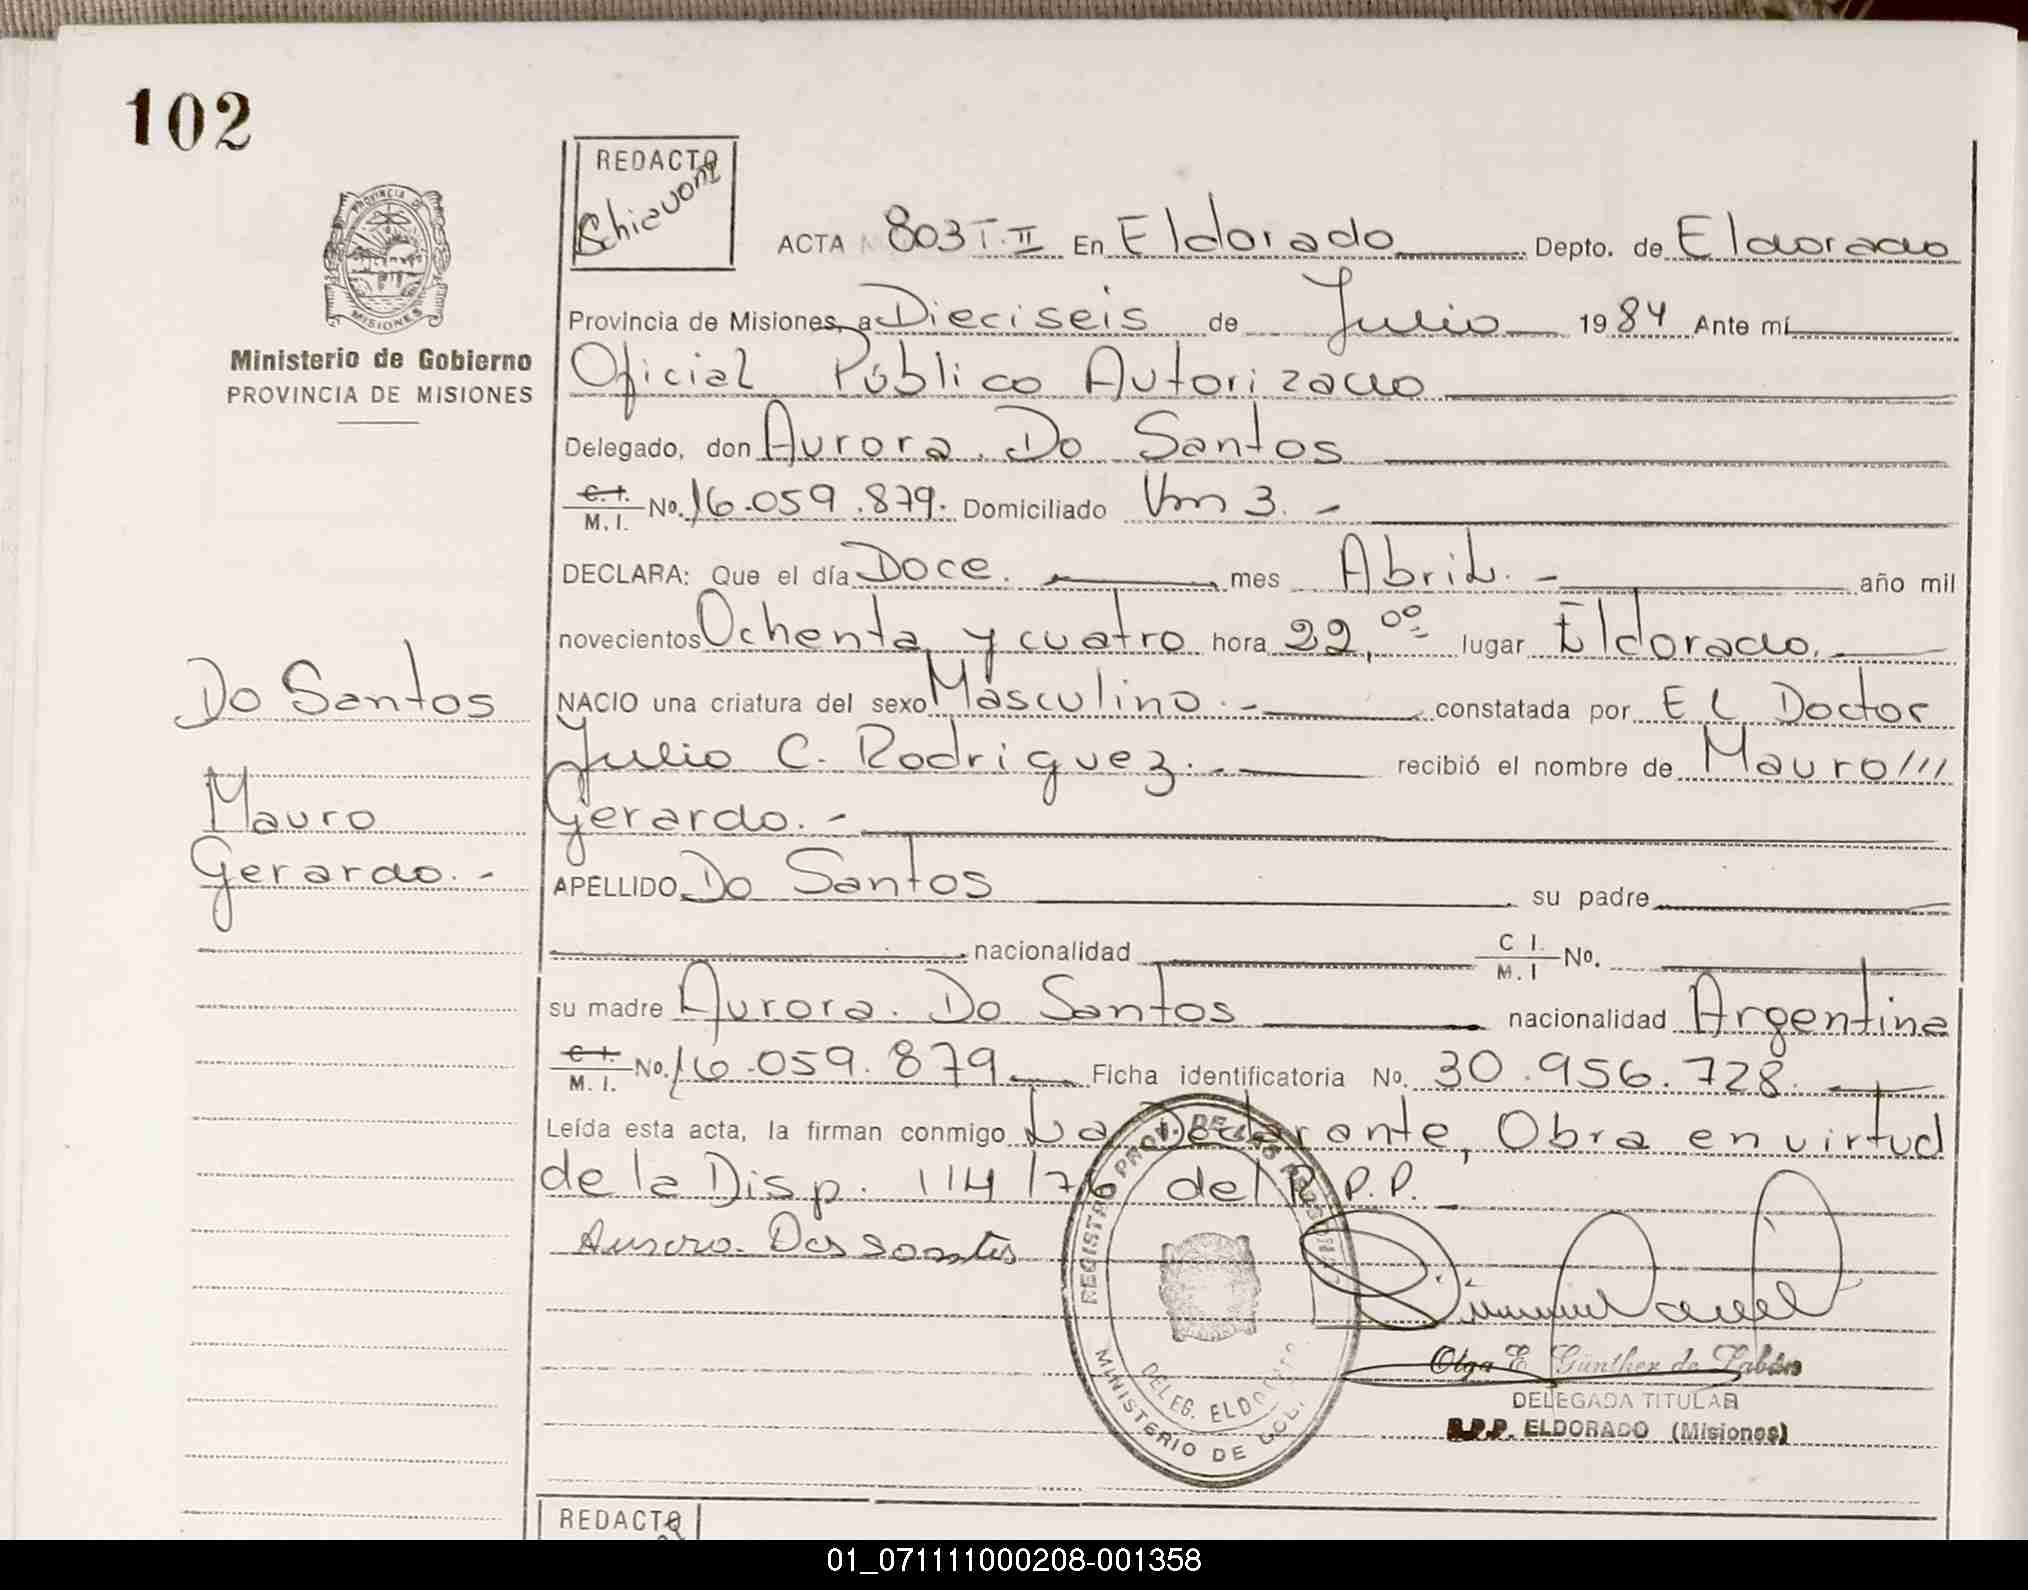 102
REDACTO
Schiavoni
PROVINCIA DE
MISIONES
Ministerio de Gobierno
PROVINCIA DE MISIONES
ACTA N 803 T. II En Eldorado Depto. de Eldorado
Provincia de Misiones, a Dieciseis de Julio 1984 Ante mí
Oficial Público Autorizado
Delegado, don Aurora. Do Santos
C.I. M.I. No. 16.059.879. Domiciliado Km 3. -
DECLARA: Que el día Doce. mes Abril. - año mil
novecientos Ochenta y cuatro hora 22,00 lugar Eldorado.
NACIO una criatura del sexo Masculino. - constatada por El Doctor
Julio C. Rodriguez. - recibió el nombre de Mauro///
Gerardo. -
APELLIDO Do Santos su padre
nacionalidad C I. M.I No.
su madre Aurora. Do Santos nacionalidad Argentina
C.I. M.I. No. 16.059.879 Ficha identificatoria No. 30.956.728.
Leída esta acta, la firman conmigo La Declarante, Obra en virtud
de la Disp. 114/76 del R.P.P. -
Do Santos
Mauro
Gerardo. -
REGISTRO PROV. DE LAS PERSONAS
DELEG. ELDORADO
MINISTERIO DE GOB.
Olga E. Günther de
DELEGADA TITULAR
R.P.P. ELDORADO (Misiones)
REDACTO
01_071111000208-001358